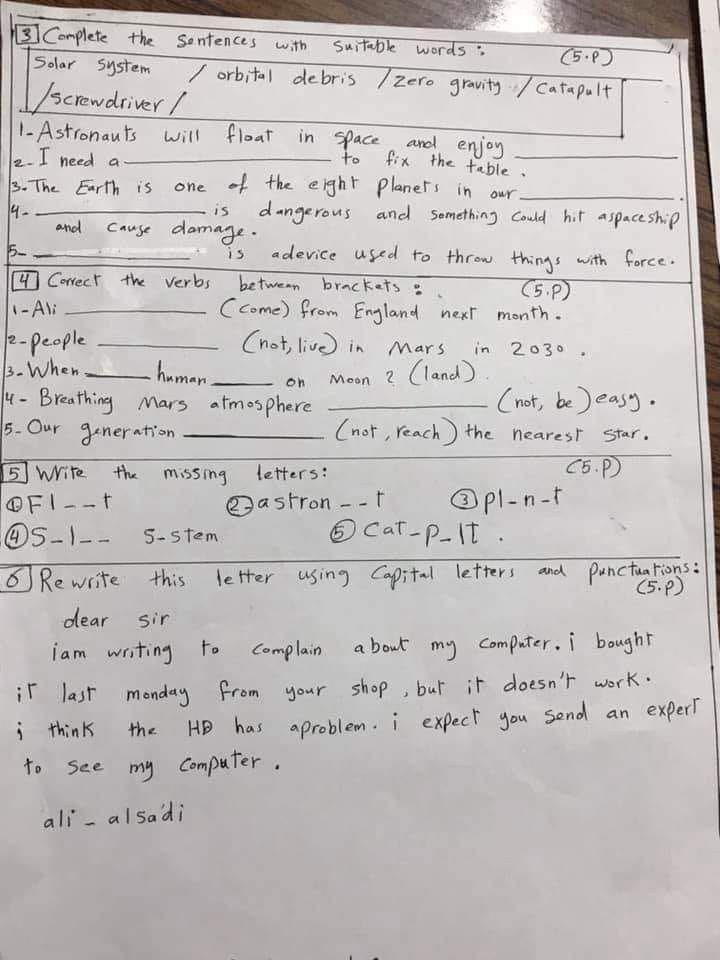 3 Complete the Sentences with Suitable words : (5.P)
Solar System / orbital debris / zero gravity / Catapult
/screwdriver /
1- Astronauts will float in space and enjoy ________ .
2- I need a ________ to fix the table .
3- The Earth is one of the eight planets in our ________ .
4- ________ is dangerous and something could hit a spaceship
and cause damage .
5- ________ is a device used to throw things with force .
4 Correct the verbs between brackets : (5.P)
1- Ali ________ (come) from England next month .
2- people ________ (not, live) in Mars in 2030 .
3- When ____ human ____ on Moon ? (land)
4 - Breathing Mars atmosphere ________ (not, be) easy .
5- Our generation ________ (not , reach) the nearest star .
5 Write the missing letters : (5.P)
① F l - - t ② astron - - t ③ pl - n - t
④ S - l - - S - stem ⑤ Cat - p - lt .
6 Rewrite this letter using Capital letters and punctuations :
(5.P)
dear sir
iam writing to complain about my computer. i bought
it last monday from your shop , but it doesn't work .
i think the HD has aproblem . i expect you send an expert
to see my computer .
ali - alsa'di